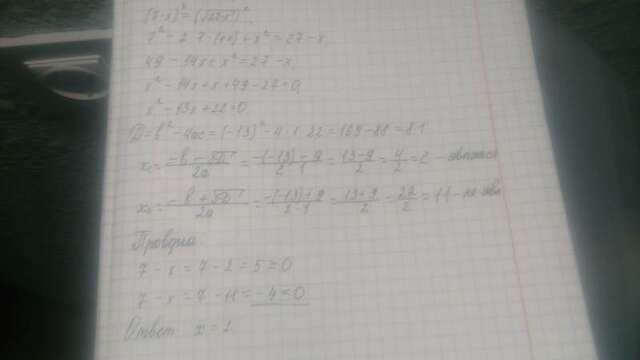 (7-x)² = (√27-x)²
7² - 2·7·(+x) + x² = 27 - x
49 - 14x + x² = 27 - x
x² - 14x + x + 49 - 27 = 0
x² - 13x + 22 = 0
D = b² - 4ac = (-13)² - 4·1·22 = 169 - 88 = 81
x₁ = (-b - √D)/2a = (-(-13) - 9)/(2·1) = (13 - 9)/2 = 4/2 = 2 -
x₂ = (-b + √D)/2a = (-(-13) + 9)/(2·1) = (13 + 9)/2 = 22/2 = 11 - не явл
Проверка
7 - x = 7 - 2 = 5 ≥ 0
7 - x = 7 - 11 = -4 = 0
Ответ x = 2